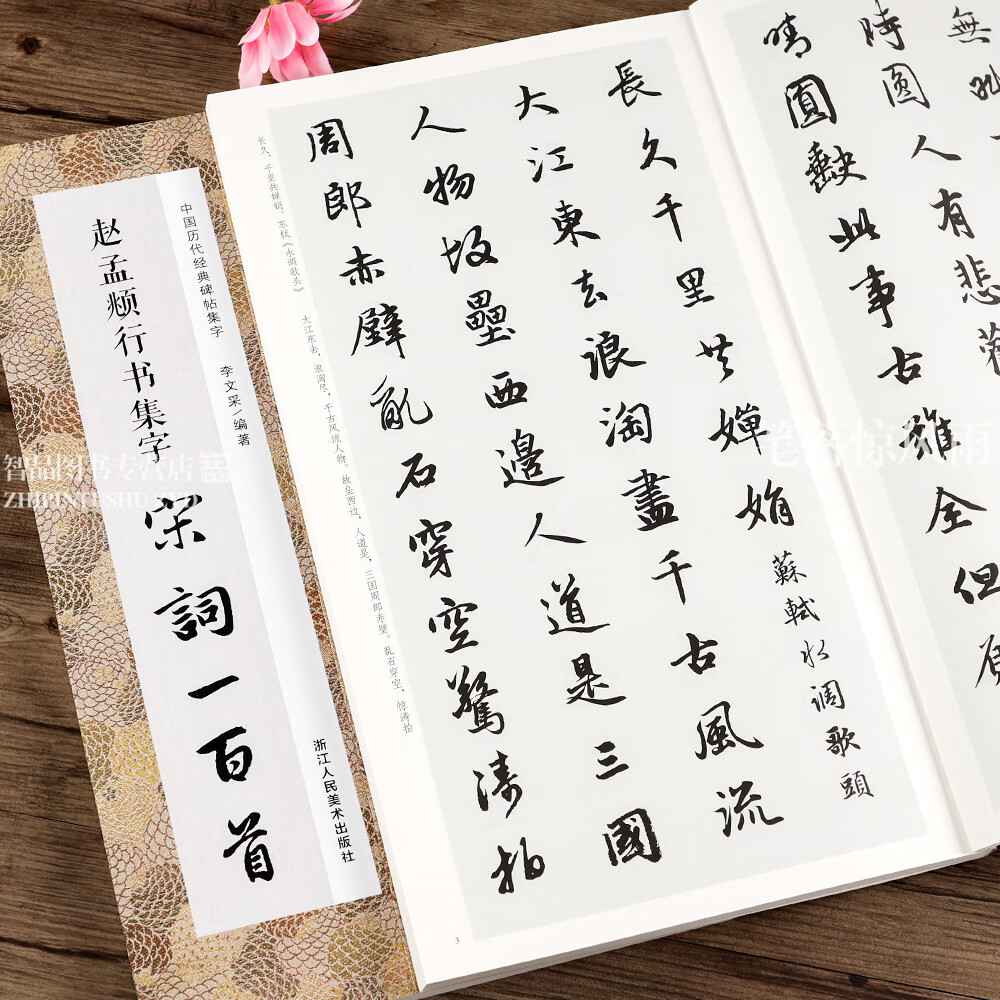 赵孟頫行书集字
宋詞一百首
中国历代经典碑帖集字
李文采/编著
浙江人民美术出版社
無
時圓人有悲
晴圓缺此事古難全但
長久千里共嬋娟
蘇軾水調歌頭
大江東去浪淘盡千古風流
人物故壘西邊人道是三國
周郎赤壁亂石穿空驚濤拍
长久，千里共婵娟。苏轼《水调歌头》
大江东去，浪淘尽，千古风流人物。故垒西边，人道是，三国周郎赤壁。乱石穿空，惊涛拍
3
智品图书专营店
笔落惊风雨